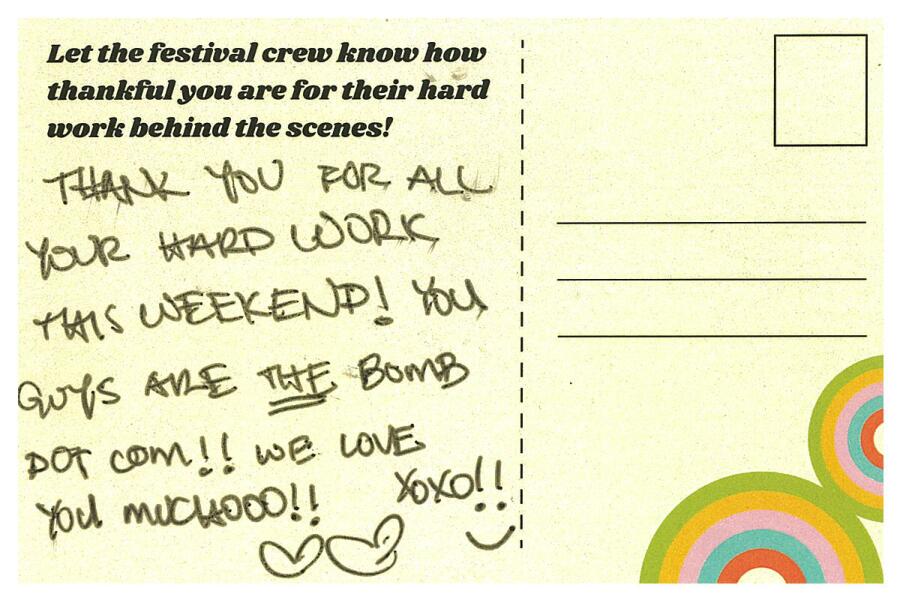 Let the festival crew know how
thankful you are for their hard
work behind the scenes!
THANK YOU FOR ALL
YOUR HARD WORK
THIS WEEKEND! YOU
GUYS ARE THE BOMB
DOT COM!! WE LOVE
YOU MUCHOOO!! XOXO!!